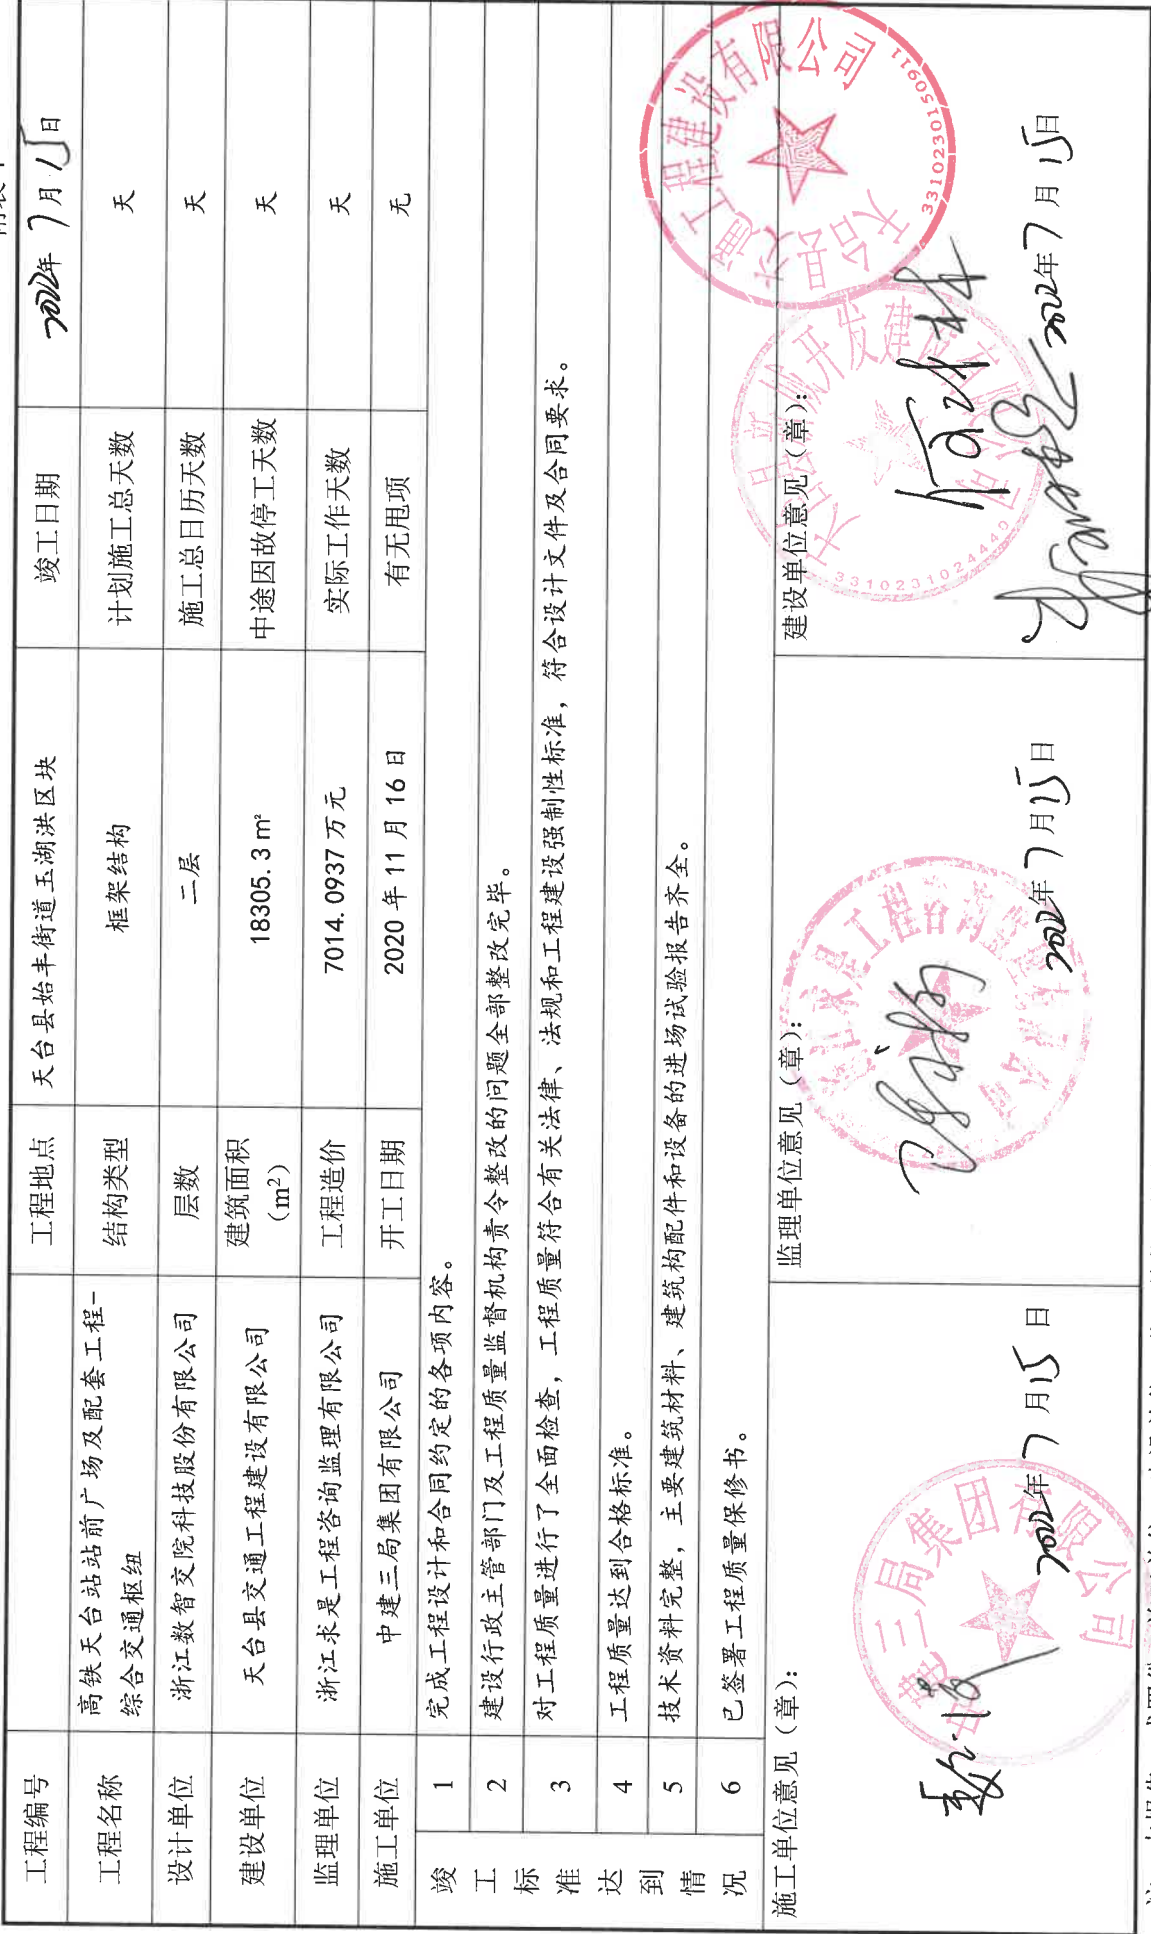 工程编号 工程地点 天台县始丰街道玉湖洪区块 竣工日期 2022年7月15日
工程名称 高铁天台站站前广场及配套工程-
综合交通枢纽 结构类型 框架结构 计划施工总天数 天
设计单位 浙江数智交院科技股份有限公司 层数 二层 施工总日历天数 天
建设单位 天台县交通工程建设有限公司 建筑面积
(m²) 18305.3㎡ 中途因故停工天数 天
监理单位 浙江求是工程咨询监理有限公司 工程造价 7014.0937万元 实际工作天数 天
施工单位 中建三局集团有限公司 开工日期 2020年11月16日 有无甩项 无
竣工标准达到情况
1 完成工程设计和合同约定的各项内容。
2 建设行政主管部门及工程质量监督机构责令整改的问题全部整改完毕。
3 对工程质量进行了全面检查，工程质量符合有关法律、法规和工程建设强制性标准，符合设计文件及合同要求。
4 工程质量达到合格标准。
5 技术资料完整，主要建筑材料、建筑构配件和设备的进场试验报告齐全。
6 已签署工程质量保修书。
施工单位意见（章）：
中建三局集团有限公司
2022年7月15日
监理单位意见（章）：
浙江求是工程咨询监理有限公司
2022年7月15日
建设单位意见（章）：
3310231024440
工程建设有限公司
3310230150911
2022年7月15日